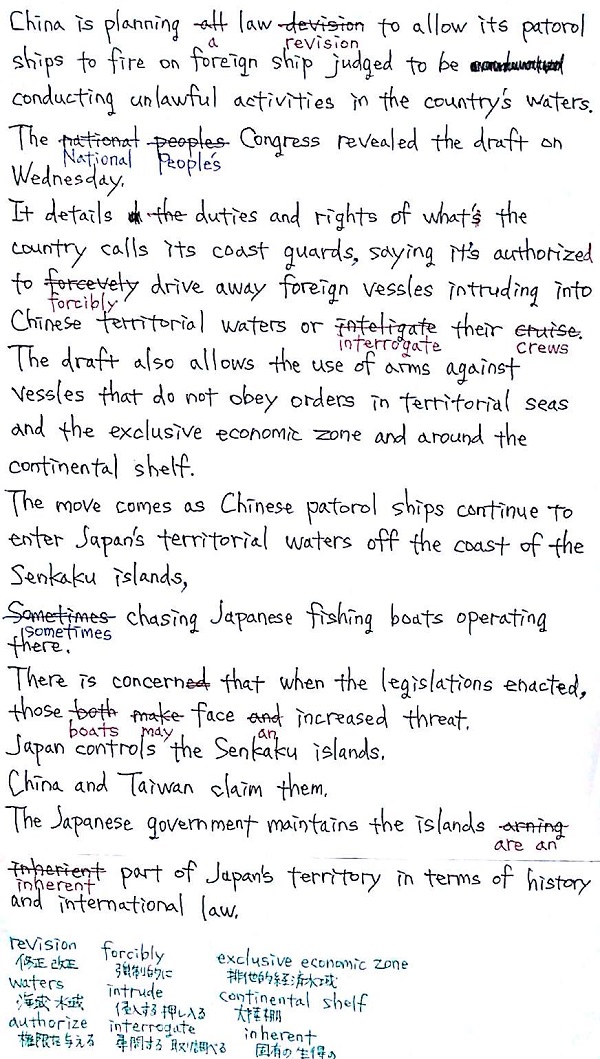 China is planning all law devision to allow its patorol
a revision
ships to fire on foreign ship judged to be
conducting unlawful activities in the country's waters.
The national peoples Congress revealed the draft on
National People's
Wednesday.
It details the duties and rights of what's the
country calls its coast guards, saying it's authorized
to forcevely drive away foreign vessles intruding into
forcibly
Chinese territorial waters or inteligate their cruise.
interrogate crews
The draft also allows the use of arms against
vessles that do not obey orders in territorial seas
and the exclusive economic zone and around the
continental shelf.
The move comes as Chinese patorol ships continue to
enter Japan's territorial waters off the coast of the
Senkaku islands,
Sometimes chasing Japanese fishing boats operating
sometimes
there.
There is concerned that when the legislations enacted,
those both make face and increased threat.
boats may an
Japan controls the Senkaku islands.
China and Taiwan claim them.
The Japanese government maintains the islands arning
are an
inherient part of Japan's territory in terms of history
inherent
and international law.
revision forcibly exclusive economic zone
修正 改正 強制的に 排他的経済水域
waters intrude continental shelf
海域 水域 侵入する 押し入る 大陸棚
authorize interrogate inherent
権限を与える 尋問する 取り調べる 固有の 生得の